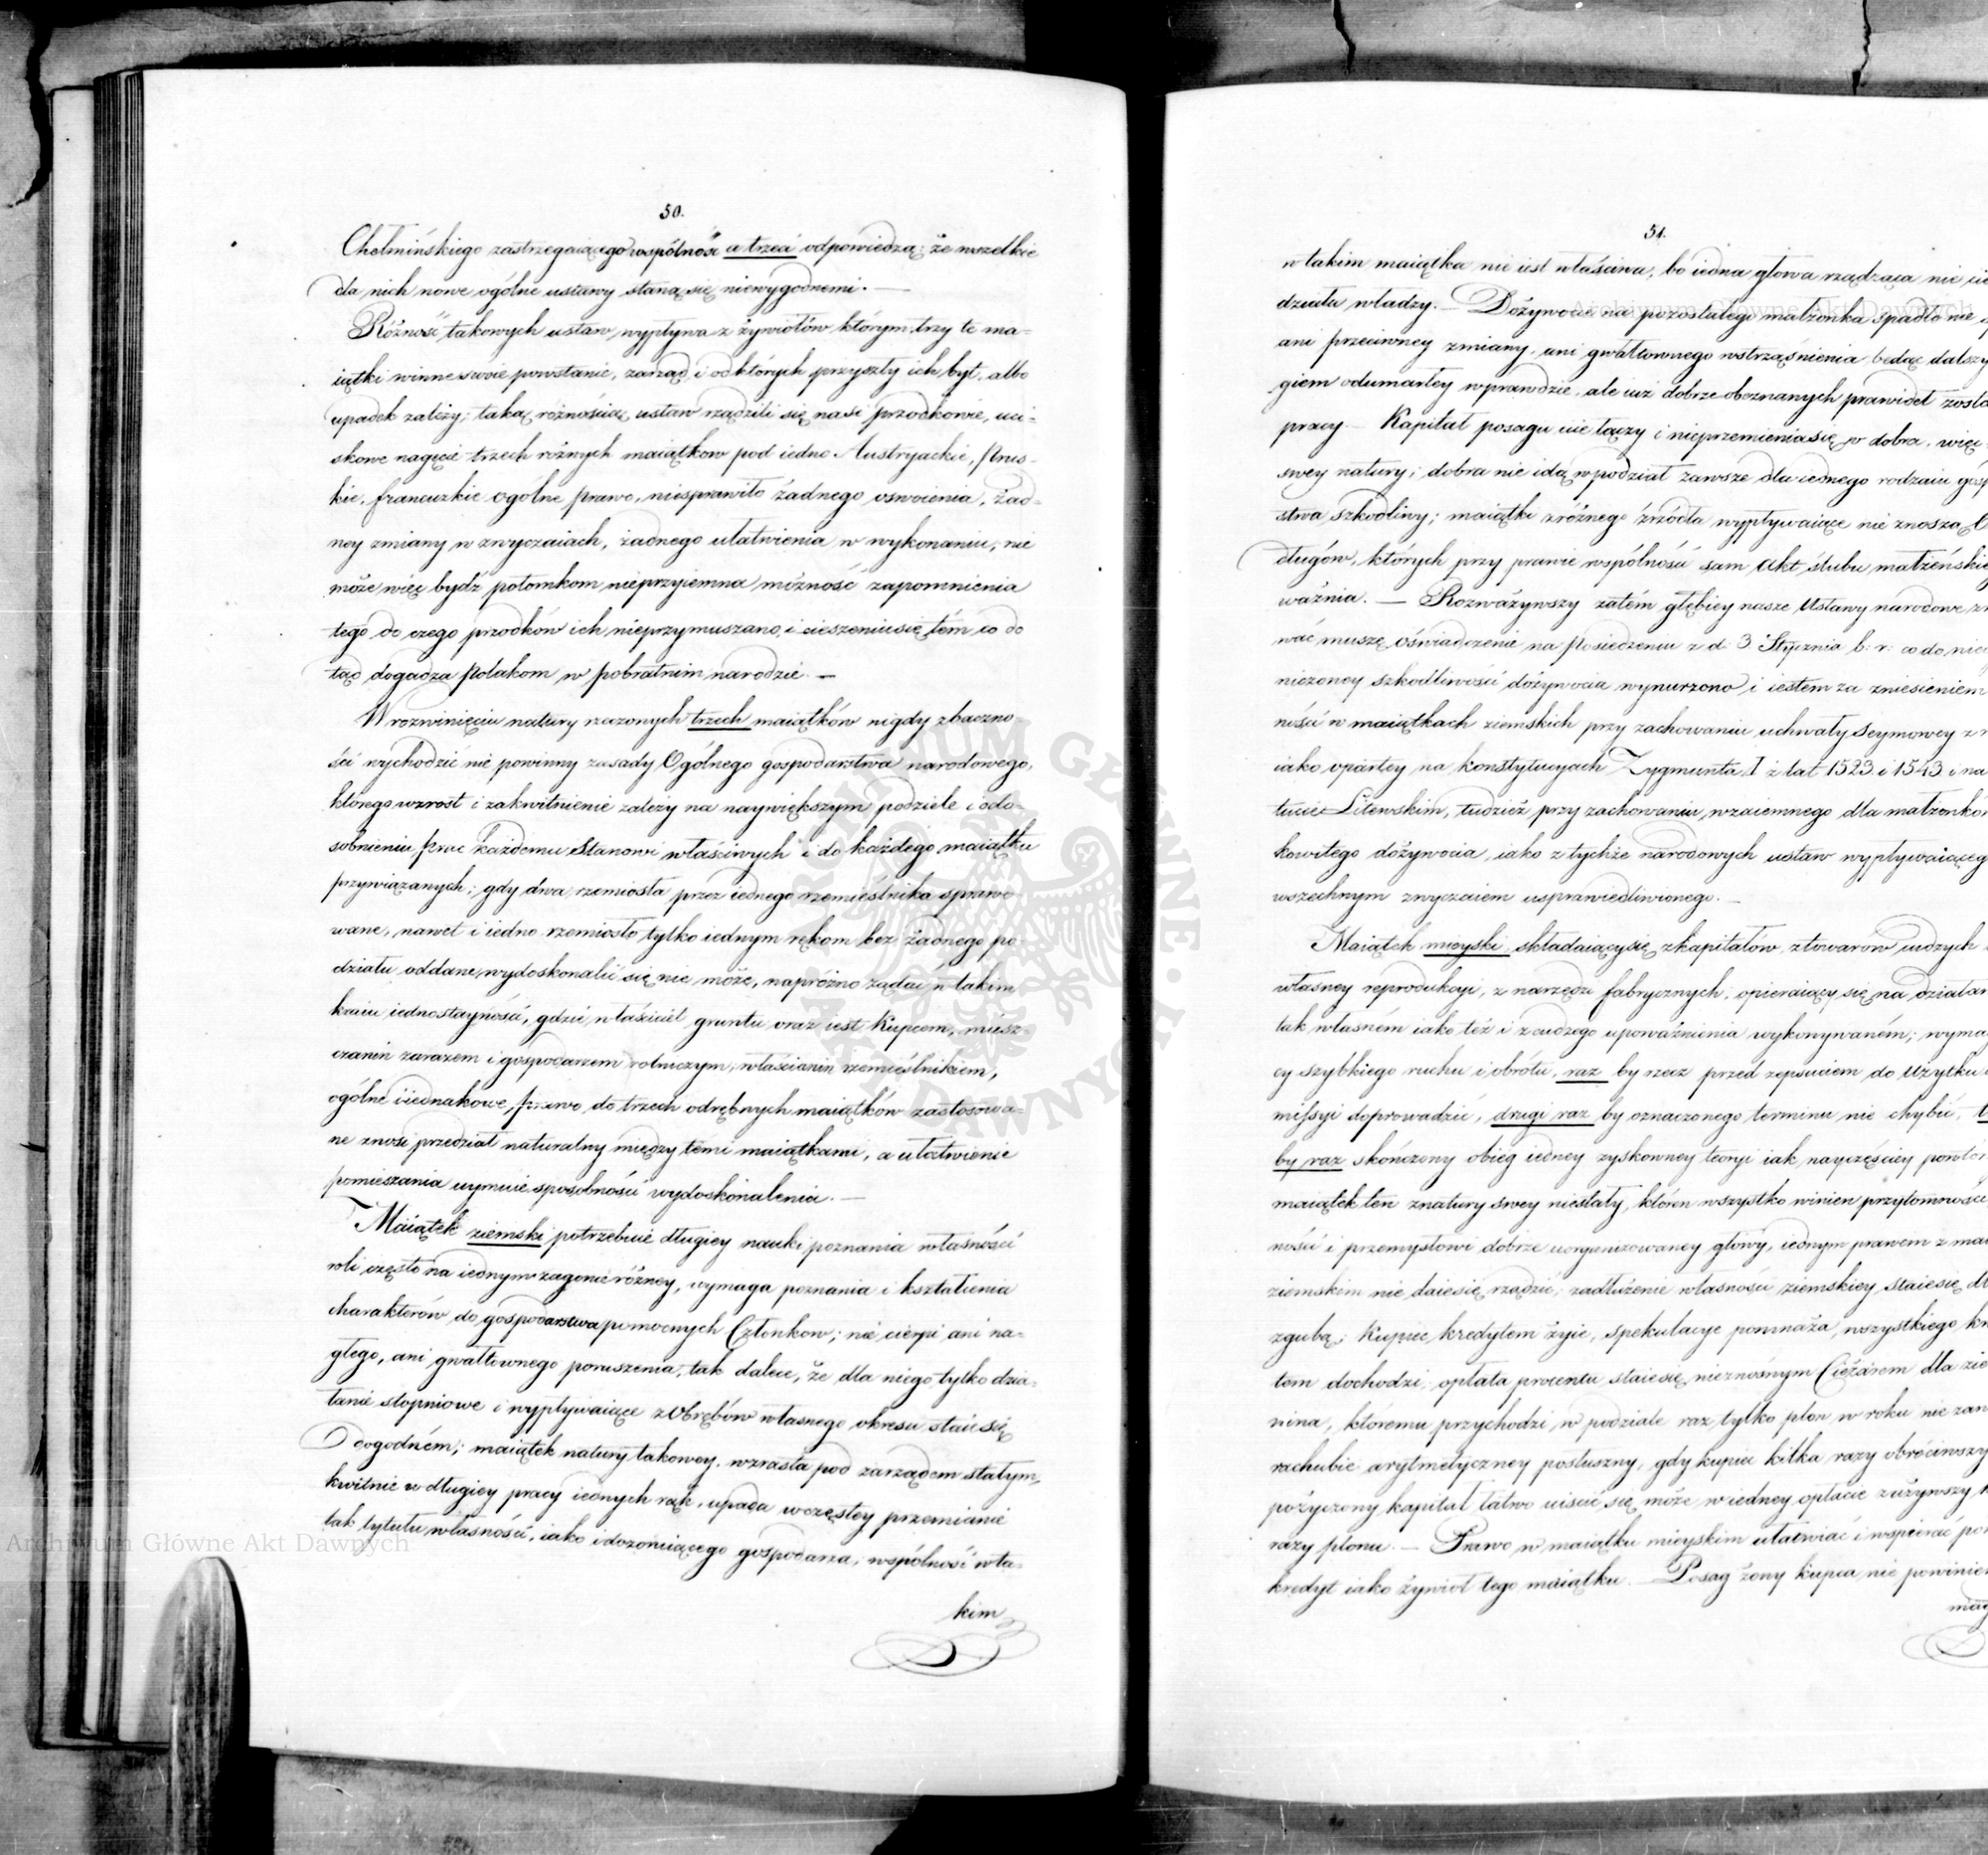 50.
Chełmińskiego zastrzegaiącego wspólność a trzeci odpowiedzą; że wszelkie
dla nich nowe ogólne ustawy staną się niewygodnemi. —
Różność takowych ustaw wypływa z żywiołów którym trzy te ma-
iątki winne swoie powstanie, zarząd, i od których przyszły ich byt, albo
upadek zależy; taką różnością ustaw rządzili się nasi przodkowie, uci-
skowe nagięcie trzech różnych maiątkow pod iedno Austryackie, Prus-
kie, francuzkie ogólne prawo, niesprawiło żadnego oswoienia, żad-
ney zmiany w zwyczaiach, żadnego ułatwienia w wykonaniu; nie
może więc bydź potomkom nieprzyiemna możność zapomnienia
tego do czego przodków ich nieprzymuszano, i cieszenia się tém co do
tąd dogadza Polakom w pobratnim narodzie. —
W rozwinięciu natury rzeczonych trzech maiątków nigdy z baczno
ści wychodzić nie powinny zasady Ogólnego gospodarstwa narodowego,
którego wzrost i zakwitnienie zależy na naywiększym podziele i odo-
sobnieniu prac każdemu Stanowi właściwych i do każdego maiątku
przywiązanych; gdy dwa rzemiosła przez iednego rzemieślnika sprawo
wane, nawet i iedno rzemiosło tylko iednym rękom bez żadnego po
działu oddane, wydoskonalić się nie może, napróżno żądać w takim
kraiu iednostayności, gdzie właściciel gruntu oraz iest Kupcem, miesz-
czanin zarazem i gospodarzem rolniczym, włościanin rzemieślnikiem,
ogólne i iednakowe, prawo do trzech odrębnych maiątków zastosowa-
ne znosi przedział naturalny między temi maiątkami, a ułatwienie
pomieszania uymuie sposobności wydoskonalenia. —
Maiątek ziemski potrzebuie długiey nauki poznania własności
roli często na iednym zagonie różney, wymaga poznania i kształcenia
charakterów do gospodarstwa pomocnych Członkow; nie cierpi ani na-
głego, ani gwałtownego poruszenia, tak dalece, że dla niego tylko dzia-
łanie stopniowe i wypływaiące z Obrębów własnego okresu staie się
Dogodném; maiątek natury takowey, wzrasta pod zarządem stałym,
kwitnie w długiey pracy iednych rąk, upada w częstey przemianie
tak tytułu własności, iako i dozoruiącego gospodarza, wspólność w ta-
kim
51.
w takim maiątku nie iest właściwa, bo iedna głowa rządząca nie cie
działu władzy. — Dożywocie na pozostałego małżonka spadło nie
ani przeciwney zmiany, ani gwałtownego wstrząśnienia będąc dalszy
giem odumarłey wprawdzie, ale iuż dobrze obeznanych prawideł zosta
pracy. — Kapitał posagu nie łączy i nieprzemienia się w dobra, więc
swey natury; dobra nie idą w podział zawsze dla iednego rodzaiu gosp
stwa szkodliwy; maiątki z różnego źrzódła wypływaiące nie znoszą
długów, których przy prawie wspólności sam Akt ślubu małżeński
ważnia. — Rozważywszy zatém głębiey nasze Ustawy narodowe
wać muszę oświadczenie na Posiedzeniu z d: 3 Stycznia b: r: co do
niczoney szkodliwości dożywocia wynurzono i iestem za zniesieniem
ności w maiątkach ziemskich przy zachowaniu uchwały Seymowey z
iako opartey na konstytucyach Zygmunta I z lat 1523. i 1543. i na
tucie Litewskim, tudzież przy zachowaniu, wzaiemnego dla małżonkó
kowitego dożywocia, iako z tychże narodowych ustaw wypływaiąceg
wszechnym zwyczaiem usprawiedliwionego. —
Maiątek mieyski składaiący się z kapitałów, z towarów cudzych
własney reprodukcyi, z narzędzi fabrycznych, opieraiący się na działan
tak własném iako też i z cudzego upoważnienia wykonywaném; wyma
cy szybkiego ruchu i obrótu, raz by rzecz przed zepsuciem do Użytku
missyi doprowadzić, drugi raz by oznaczonego terminu nie chybić,
by raz skończony obieg iedney zyskowney teoryi iak nayczęściey powtor
maiątek ten z natury swey niestały, któren wszystko winien przytomności
ności i przemysłowi dobrze uorganizowaney głowy, iednym prawem z mai
ziemskim nie daie się rządzić; zadłużenie własności ziemskiey staie się
zgubą; Kupiec kredytem żyie, spekulacye pomnaża, wszystkiego
tem dochodzi, opłata procentu staie się nieznośnym Ciężarem dla zie
nina, ktoremu przychodzi w podziale raz tylko plon w roku nie zaw
rachubie arytmetyczney posłuszny, gdy kupiec kilka razy obróciwszy
pożyczony kapitał łatwo uiścić się może w iedney opłacie zużywszy
razy plonu. — Prawo w maiątku mieyskim ułatwiać i wspierać po
kredyt iako żywioł tego maiątku. — Posag żony kupca nie powinien
Archiwum Główne Akt Dawnych
Archiwum Główne Akt Dawnych
ARCHIWUM GŁÓWNE AKT DAWNYCH